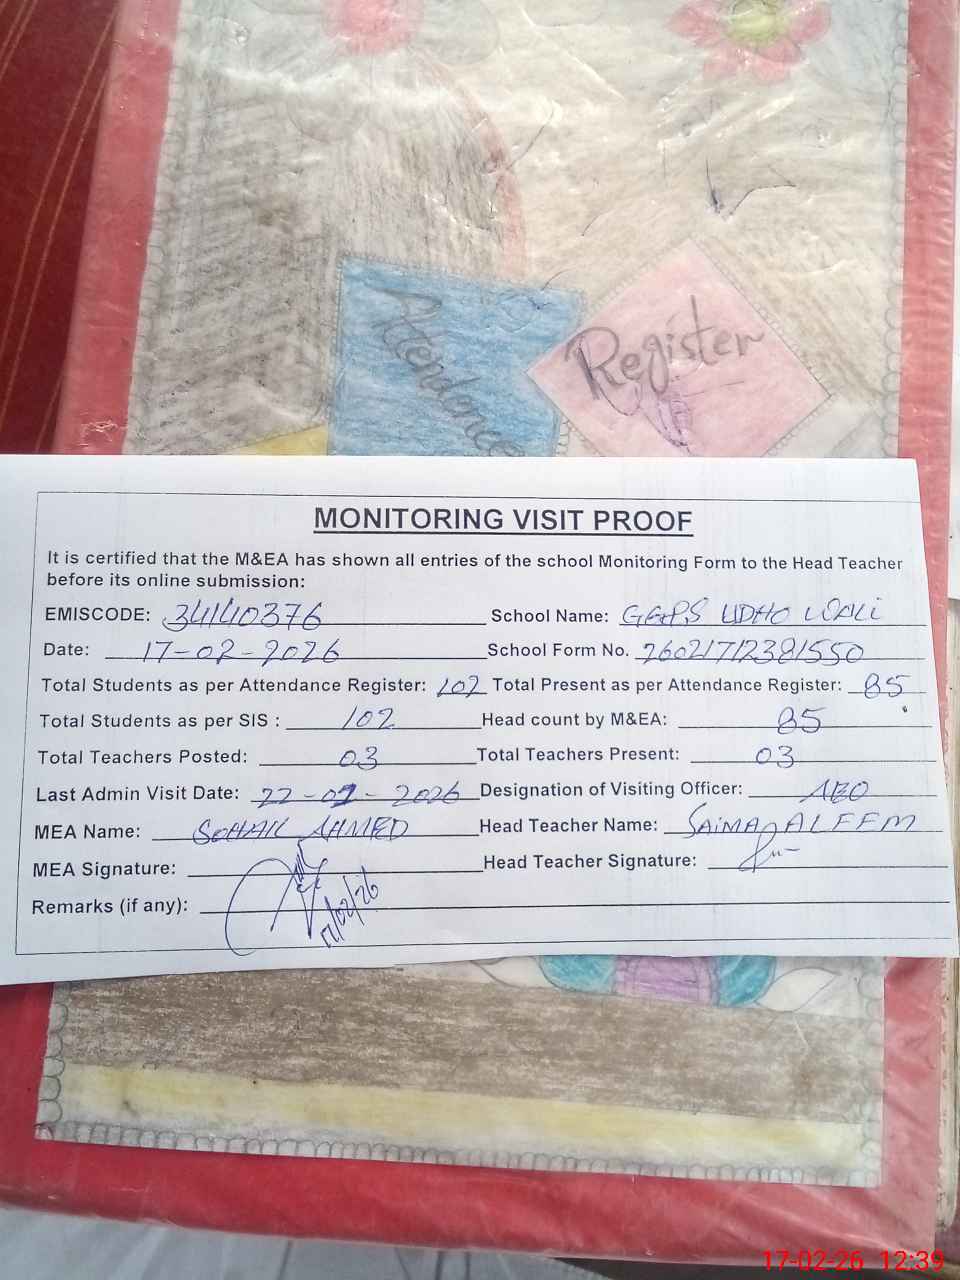 Attendence
Register
MONITORING VISIT PROOF
It is certified that the M&EA has shown all entries of the school Monitoring Form to the Head Teacher
before its online submission:
EMISCODE: 34140376 School Name: GGPS UDHO WALI
Date: 17-02-2026 School Form No. 26021712381550
Total Students as per Attendance Register: 102 Total Present as per Attendance Register: 85
Total Students as per SIS : 102 Head count by M&EA: 85
Total Teachers Posted: 03 Total Teachers Present: 03
Last Admin Visit Date: 22-01-2026 Designation of Visiting Officer: AEO
MEA Name: SOHAIL AHMED Head Teacher Name: SAIMA ALEEM
MEA Signature: Head Teacher Signature:
17/02/26
Remarks (if any):
17-02-26 12:39